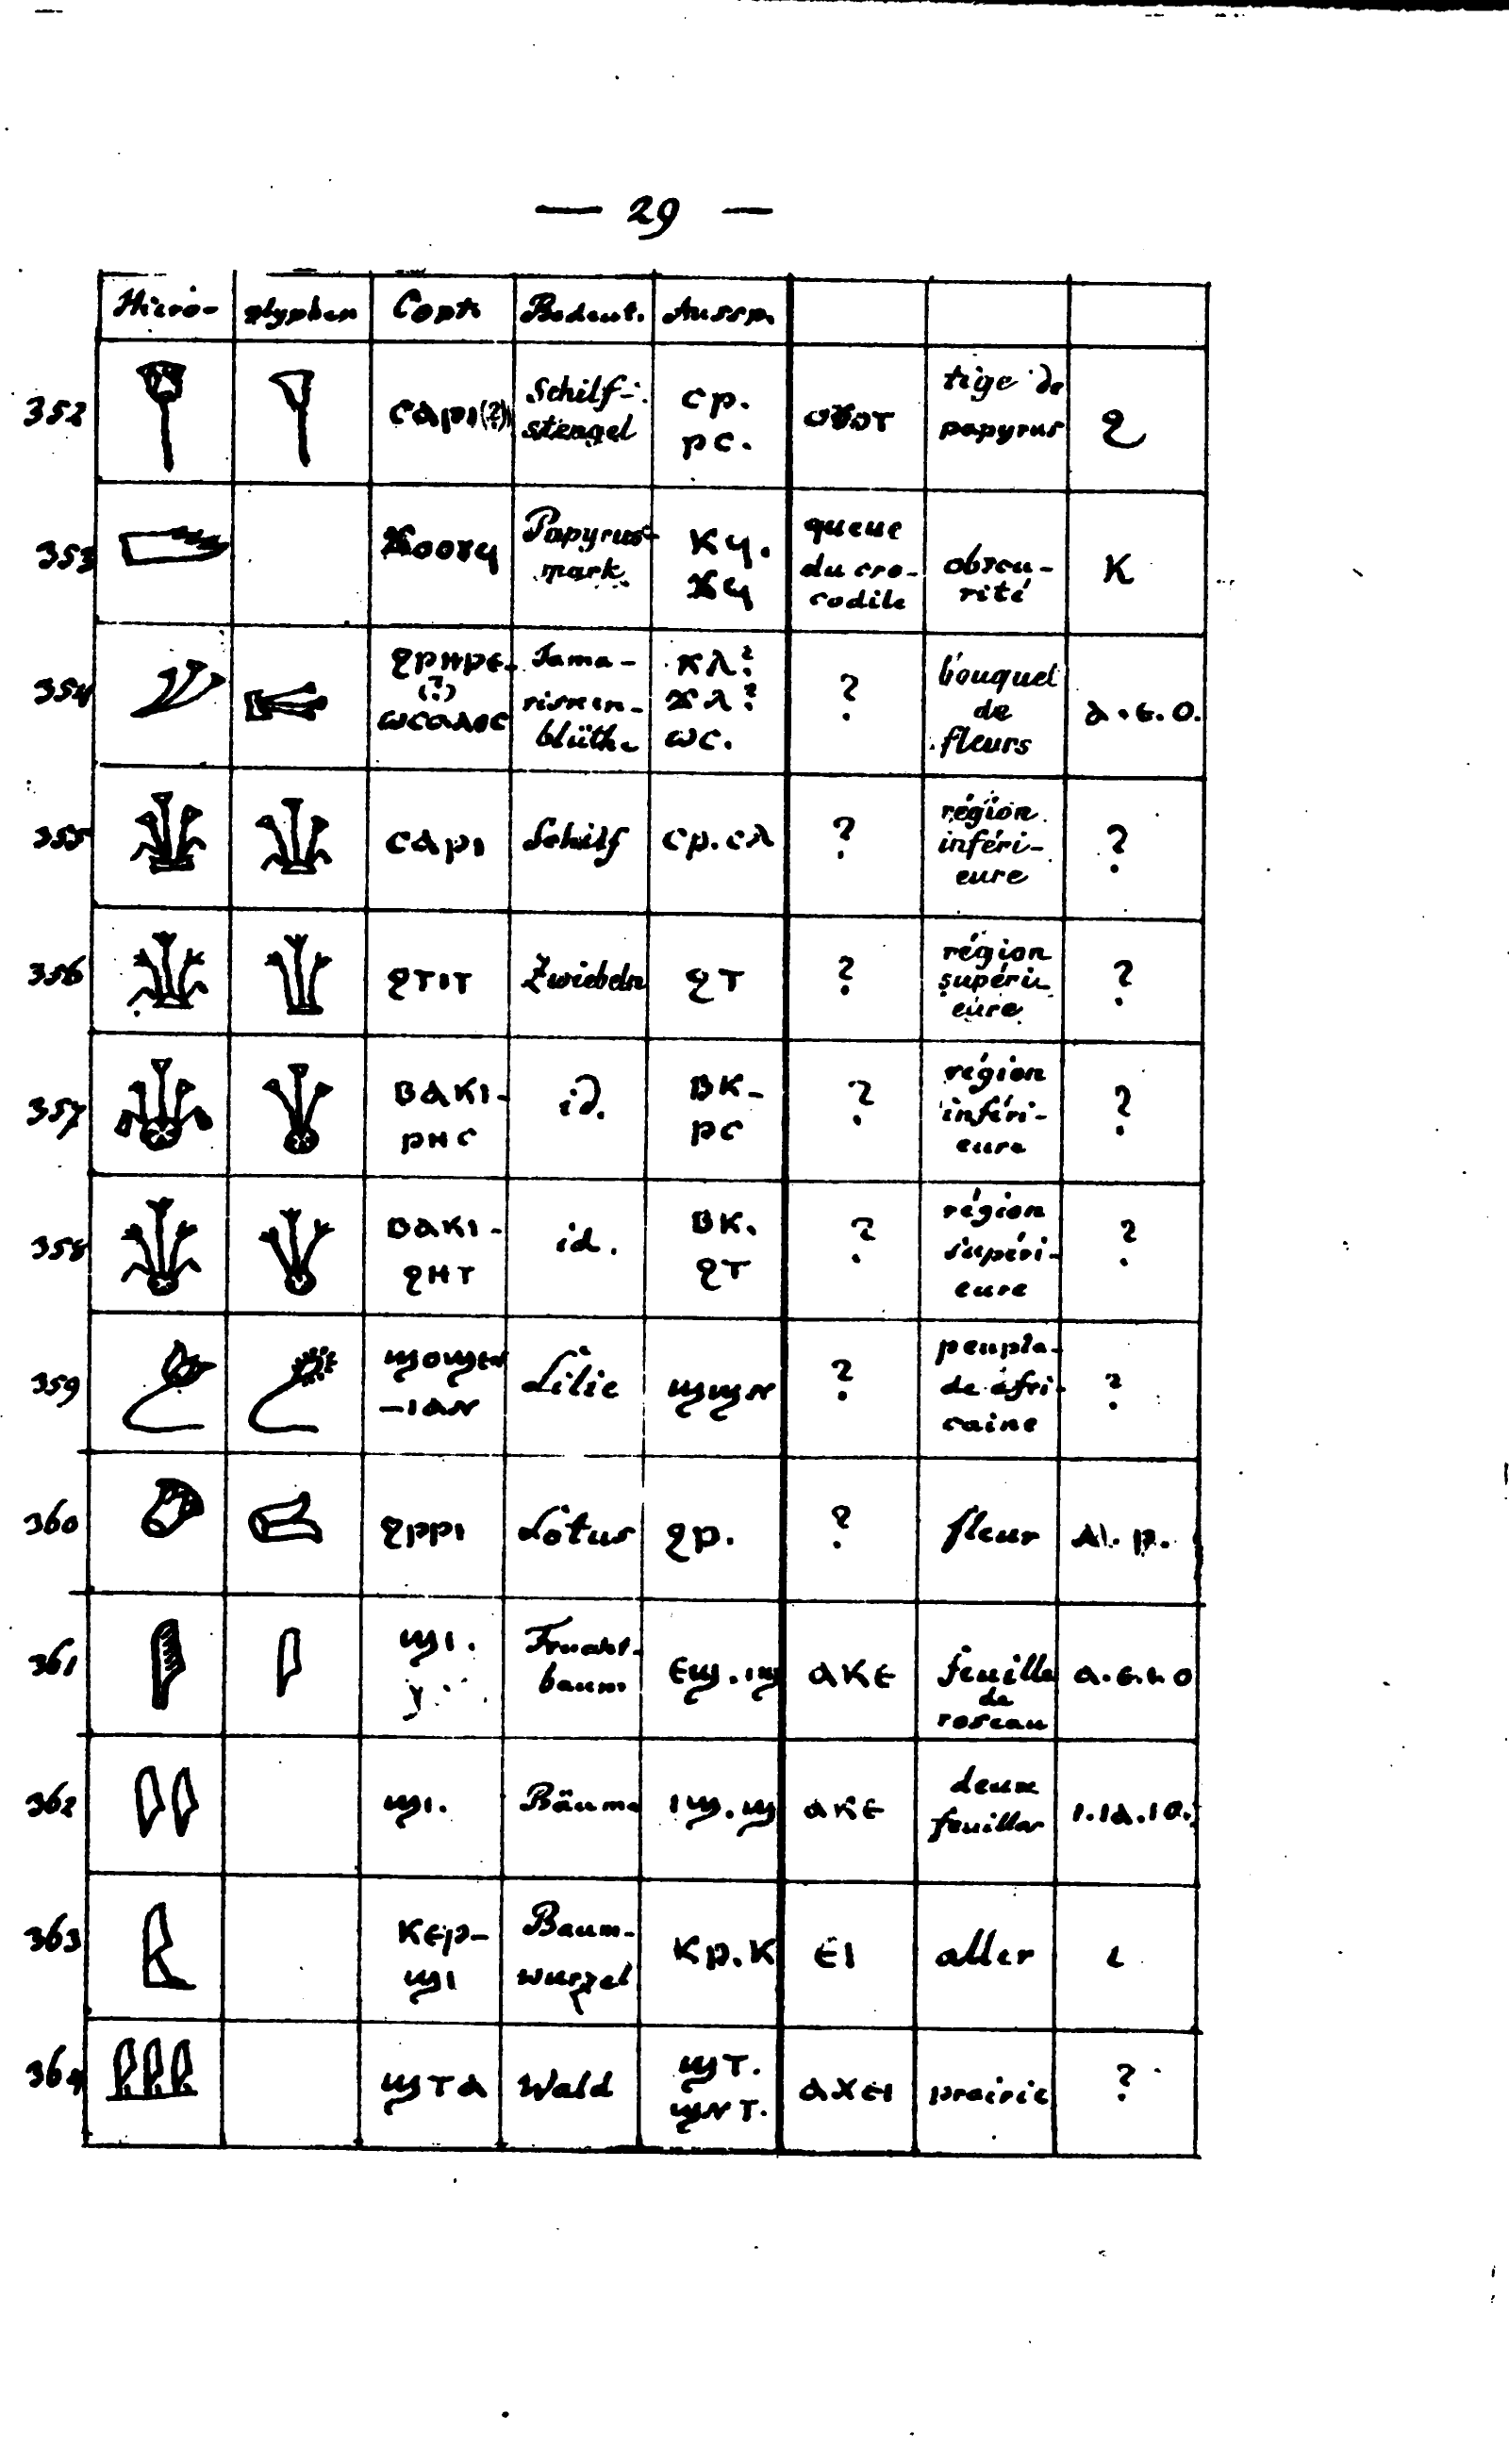 — 29 —
Hiero- glyphen Copt. Bedeut. Aussp.
352 ⲥⲁⲣⲓ(?) Schilf-stengel ⲥⲣ. ⲣⲥ. tige de papyrus ϩ
353 ϫⲟⲟⲩϥ Papyrus-mark ⲕϥ. ϫϥ queue du cro-codile obscu-rité ⲕ
354 ϩⲣⲏⲣⲉ- (?) Tama-risken-blüthe ⲕⲗ? ϫⲗ? ⲱⲥ. ? bouquet de fleurs ⲁ.ⲉ.ⲟ.
355 ⲥⲁⲣⲓ Schilf ⲥⲣ.ⲥⲗ ? région inféri-eure ?
356 ϩⲧⲓⲧ Zwiebeln ϩⲧ ? région supéri-eure ?
357 ⲃⲁⲕⲓ-ⲣⲏⲥ id. ⲃⲕ-ⲣⲥ ? région inféri-eure ?
358 ⲃⲁⲕⲓ-ϩⲏⲧ id. ⲃⲕ. ϩⲧ ? région supéri-eure ?
359 ϣⲟϣⲉⲛ-ⲓⲁⲛ Lilie ϣϣⲛ ? peupla-de afri-caine ?
360 ϩⲣⲣⲓ Lotus ϩⲣ. ? fleur
361 ϣⲓ. Frucht-baum ⲉϣ.ⲓϣ ⲁⲕⲉ feuille de roseau
362 ϣⲓ. Bäume ⲓϣ.ϣ ⲁⲕⲉ deux feuilles ⲓ.ⲓⲁ.ⲓⲟ.
363 ⲕⲉⲣ-ϣⲓ Baum-wurzel ⲕⲣ.ⲕ ⲉⲓ aller ⲓ
364 ϣⲧⲁ Wald ϣⲧ. ϣⲛⲧ. ⲁⲭⲉⲓ prairie ?